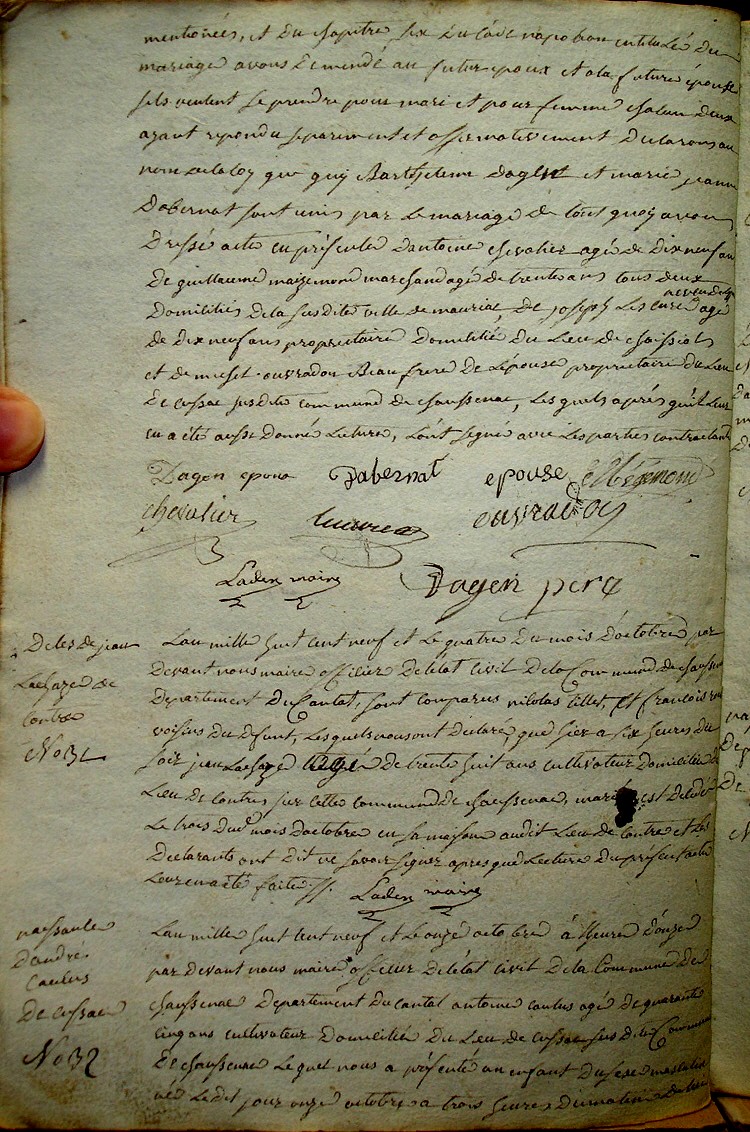 mentionées, et du chapitre six du code napoleon intitulé du
mariage avons demendé au futur epoux et a la future épouse
sils veulent se prendre pour mari et pour femme chacun deux
ayant repondu separement et affirmativement declarons au
nom de la loy que guy Barthelemi dagen et marie jeanne
Dabernat sont unis par le mariage de tout quoy avons
Dressé acte en présence dantoine chevalier agé de dix neuf an
de guillaume maigemond marchand agé de trente ans tous deux
domiciliés de la susdite ville de mauriac, de joseph agé
de dix neuf ans proprietaire domicilié du Lieu de
et de muset ouvradou Beau frere de Lépouse proprietaire du Lieu
de cussac susdite commune de chaussenac, Lesquels aprés quil leur
en a été aussi donné Lecture, L'ont signé avec Les parties contractant
Dagen epoux Dabernat epouse
chevalier ouvradou
Laden maire Dagen pere
Deces de jean
Lachaze de
Contre
No 31
Lan mille huit cent neuf et Le quatre du mois doctobre par
devant nous maire officier de létat civil de la Commune de chaussenac
departement du Cantal, sont comparus nicolas tillet, et francois
voisins du defunt, Lesquels nous ont déclaré, que hier a six heures du
soir jean Lachaze agé de trente huit ans cultivateur domicilié du
Lieu de contre, sur cette commune de chaussenac, est decedé
Le trois dud mois doctobre en sa maison audit Lieu de Contre et Les
declarants ont dit ne savoir signer apres que Lecture du présent acte
Leur en a été faite. Laden maire
naissance
d'andré
Caulus
De cussac
No 32
Lan mille huit cent neuf et Le onze octobre à Lheure d'onze
par devant nous maire officier de létat civil de la Commune de
chaussenac departement du cantal antoine caulus agé de quarante
cinq ans cultivateur domicilié du Lieu de cussac susdite Commune
de chaussenac Lequel nous a présenté un enfant du sexe masculin
né Ledit jour onze octobre a trois heures du matin